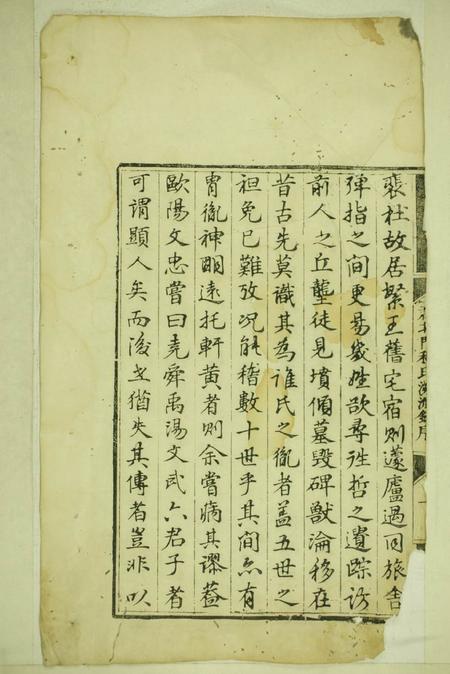 裴杜故居緊王舊宅宿則蘧廬過同旅舍
彈指之間更易幾姓欲尋往哲之遺踪訪
前人之丘壟徒見墳傾墓毀碑獸淪移在
昔古先莫識其為誰氏之胤者蓋五世之
袒免已難攷況能稽數十世乎其間亦有
胄胤神明遠托軒黃者則余嘗病其謬蓋
歐陽文忠嘗曰堯舜禹湯文武六君子者
可謂顯人矣而後世猶失其傳者豈非以